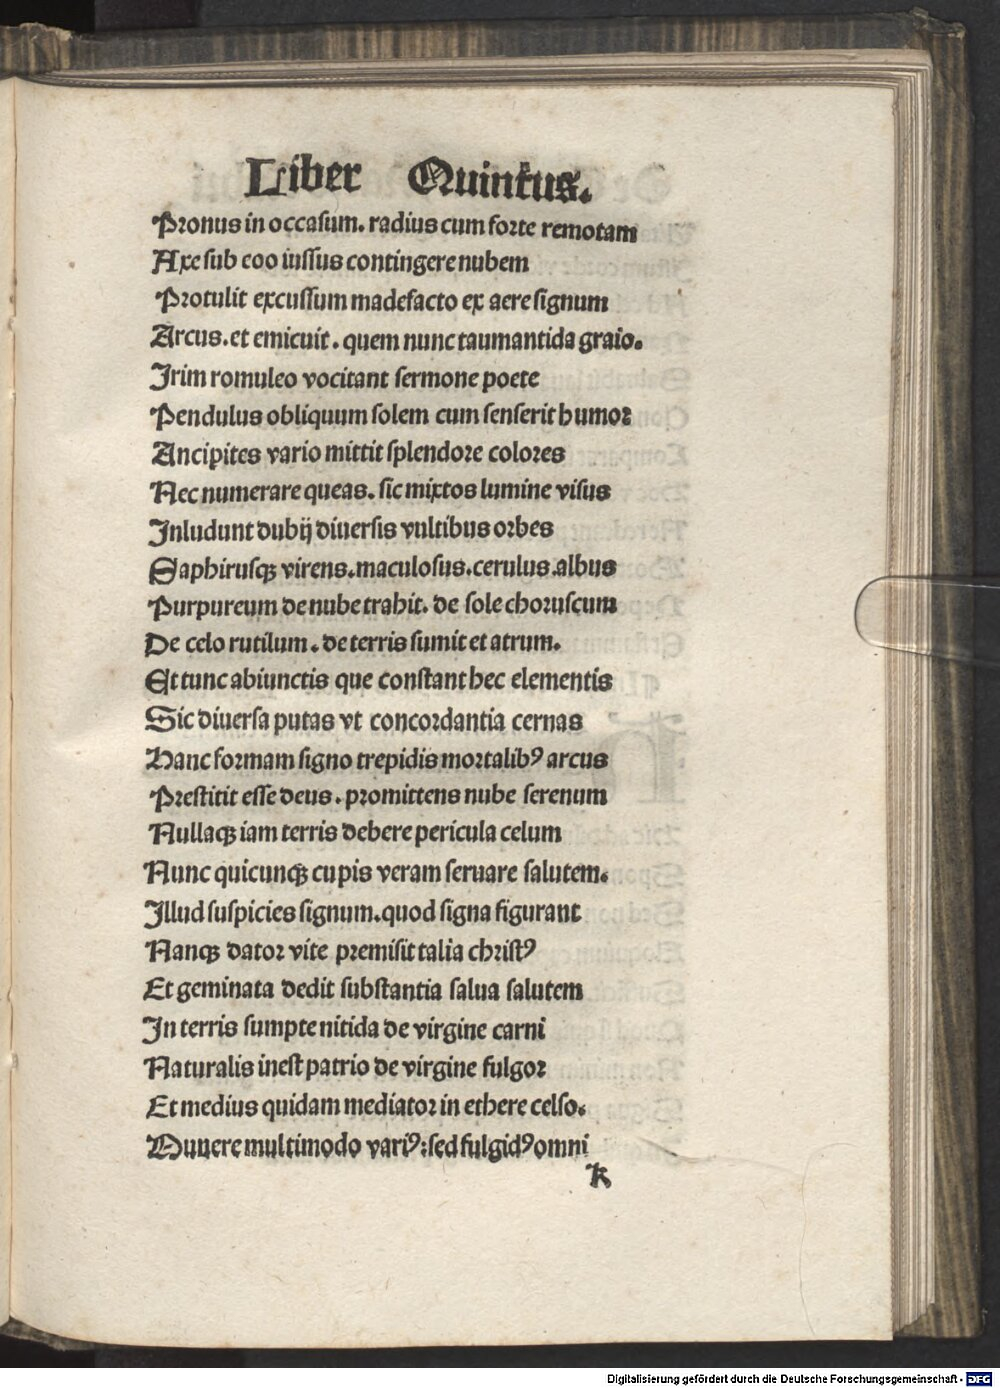 Liber Quintus.
Pronus in occasum. radius cum forte remotam
Axe sub eoo iussus contingere nubem
Protulit excussum madefacto ex aere signum
Arcus. et emicuit. quem nunc taumantida graio.
Irim romuleo vocitant sermone poete
Pendulus obliquum solem cum senserit humor
Ancipites vario mittit splendore colores
Nec numerare queas. sic mixtos lumine visus
Inludunt dubij diuersis vultibus orbes
Saphirusqꝫ virens. maculosus. cerulus. albus
Purpureum de nube trahit. de sole choruscum
De celo rutilum. de terris sumit et atrum.
Et tunc abiunctis que constant hec elementis
Sic diuersa putas vt concordantia cernas
Hanc formam signo trepidis mortalibꝰ arcus
Prestitit esse deus. promittens nube serenum
Nullaqꝫ iam terris debere pericula celum
Nunc quicunqꝫ cupis veram seruare salutem.
Illud suspicies signum. quod signa figurant
Nanqꝫ dator vite premisit talia christꝰ
Et geminata dedit substantia salua salutem
In terris sumpte nitida de virgine carni
Naturalis inest patrio de virgine fulgor
Et medius quidam mediator in ethere celso.
Munere multimodo variꝰ: sed fulgidꝰ omni
k
Digitalisierung gefördert durch die Deutsche Forschungsgemeinschaft - DFG